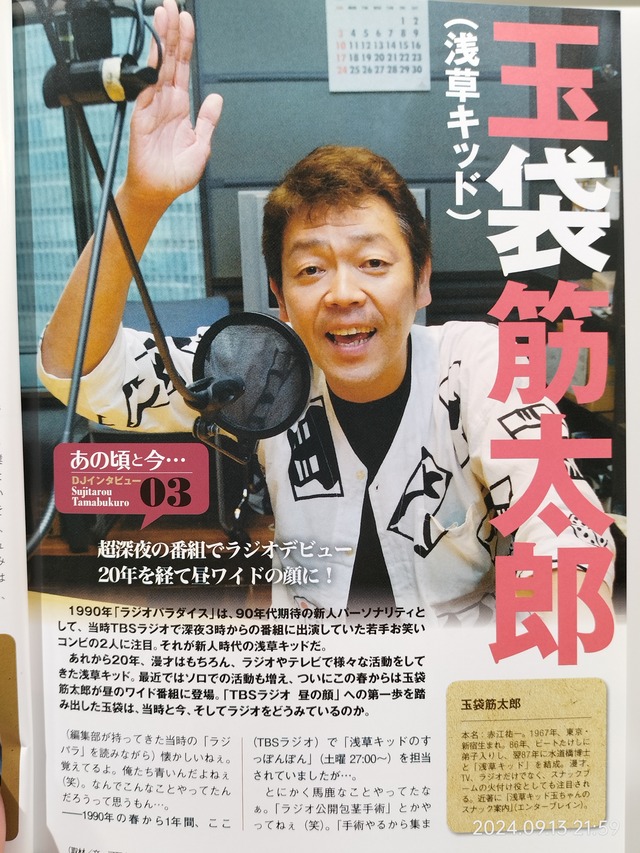 玉袋筋太郎
(浅草キッド)
あの頃と今…
DJインタビュー
Sujitarou
Tamabukuro
03
超深夜の番組でラジオデビュー
20年を経て昼ワイドの顔に!
1990年「ラジオパラダイス」は、90年代期待の新人パーソナリティと
して、当時TBSラジオで深夜3時からの番組に出演していた若手お笑い
コンビの2人に注目。それが新人時代の浅草キッドだ。
あれから20年、漫才はもちろん、ラジオやテレビで様々な活動をして
きた浅草キッド。最近ではソロでの活動も増え、ついにこの春からは玉袋
筋太郎が昼のワイド番組に登場。「TBSラジオ 昼の顔」への第一歩を踏
み出した玉袋は、当時と今、そしてラジオをどうみているのか。
(編集部が持ってきた当時の「ラジ
パラ」を読みながら)懐かしいねぇ。
覚えてるよ。俺たち青いんだよねぇ
(笑)。なんでこんなことやってたん
だろうって思うもん…。
──1990年の春から1年間、ここ
(TBSラジオ)で「浅草キッドのす
っぽんぽん」(土曜 27:00〜)を担当
されていましたが…。
とにかく馬鹿なことやってたな
ぁ。「ラジオ公開包茎手術」とかや
ってねぇ(笑)。「手術やるから集ま
玉袋筋太郎
本名:赤江祐一。1967年、東京・
新宿生まれ。86年、ビートたけしに
弟子入りし、翌87年に水道橋博士
と「浅草キッド」を結成。漫才、
TV、ラジオだけでなく、スナックブ
ームの火付け役としても注目され
る。近著に「浅草キッド玉ちゃんの
スナック案内」(エンターブレイン)。
2024.09.13 21:59